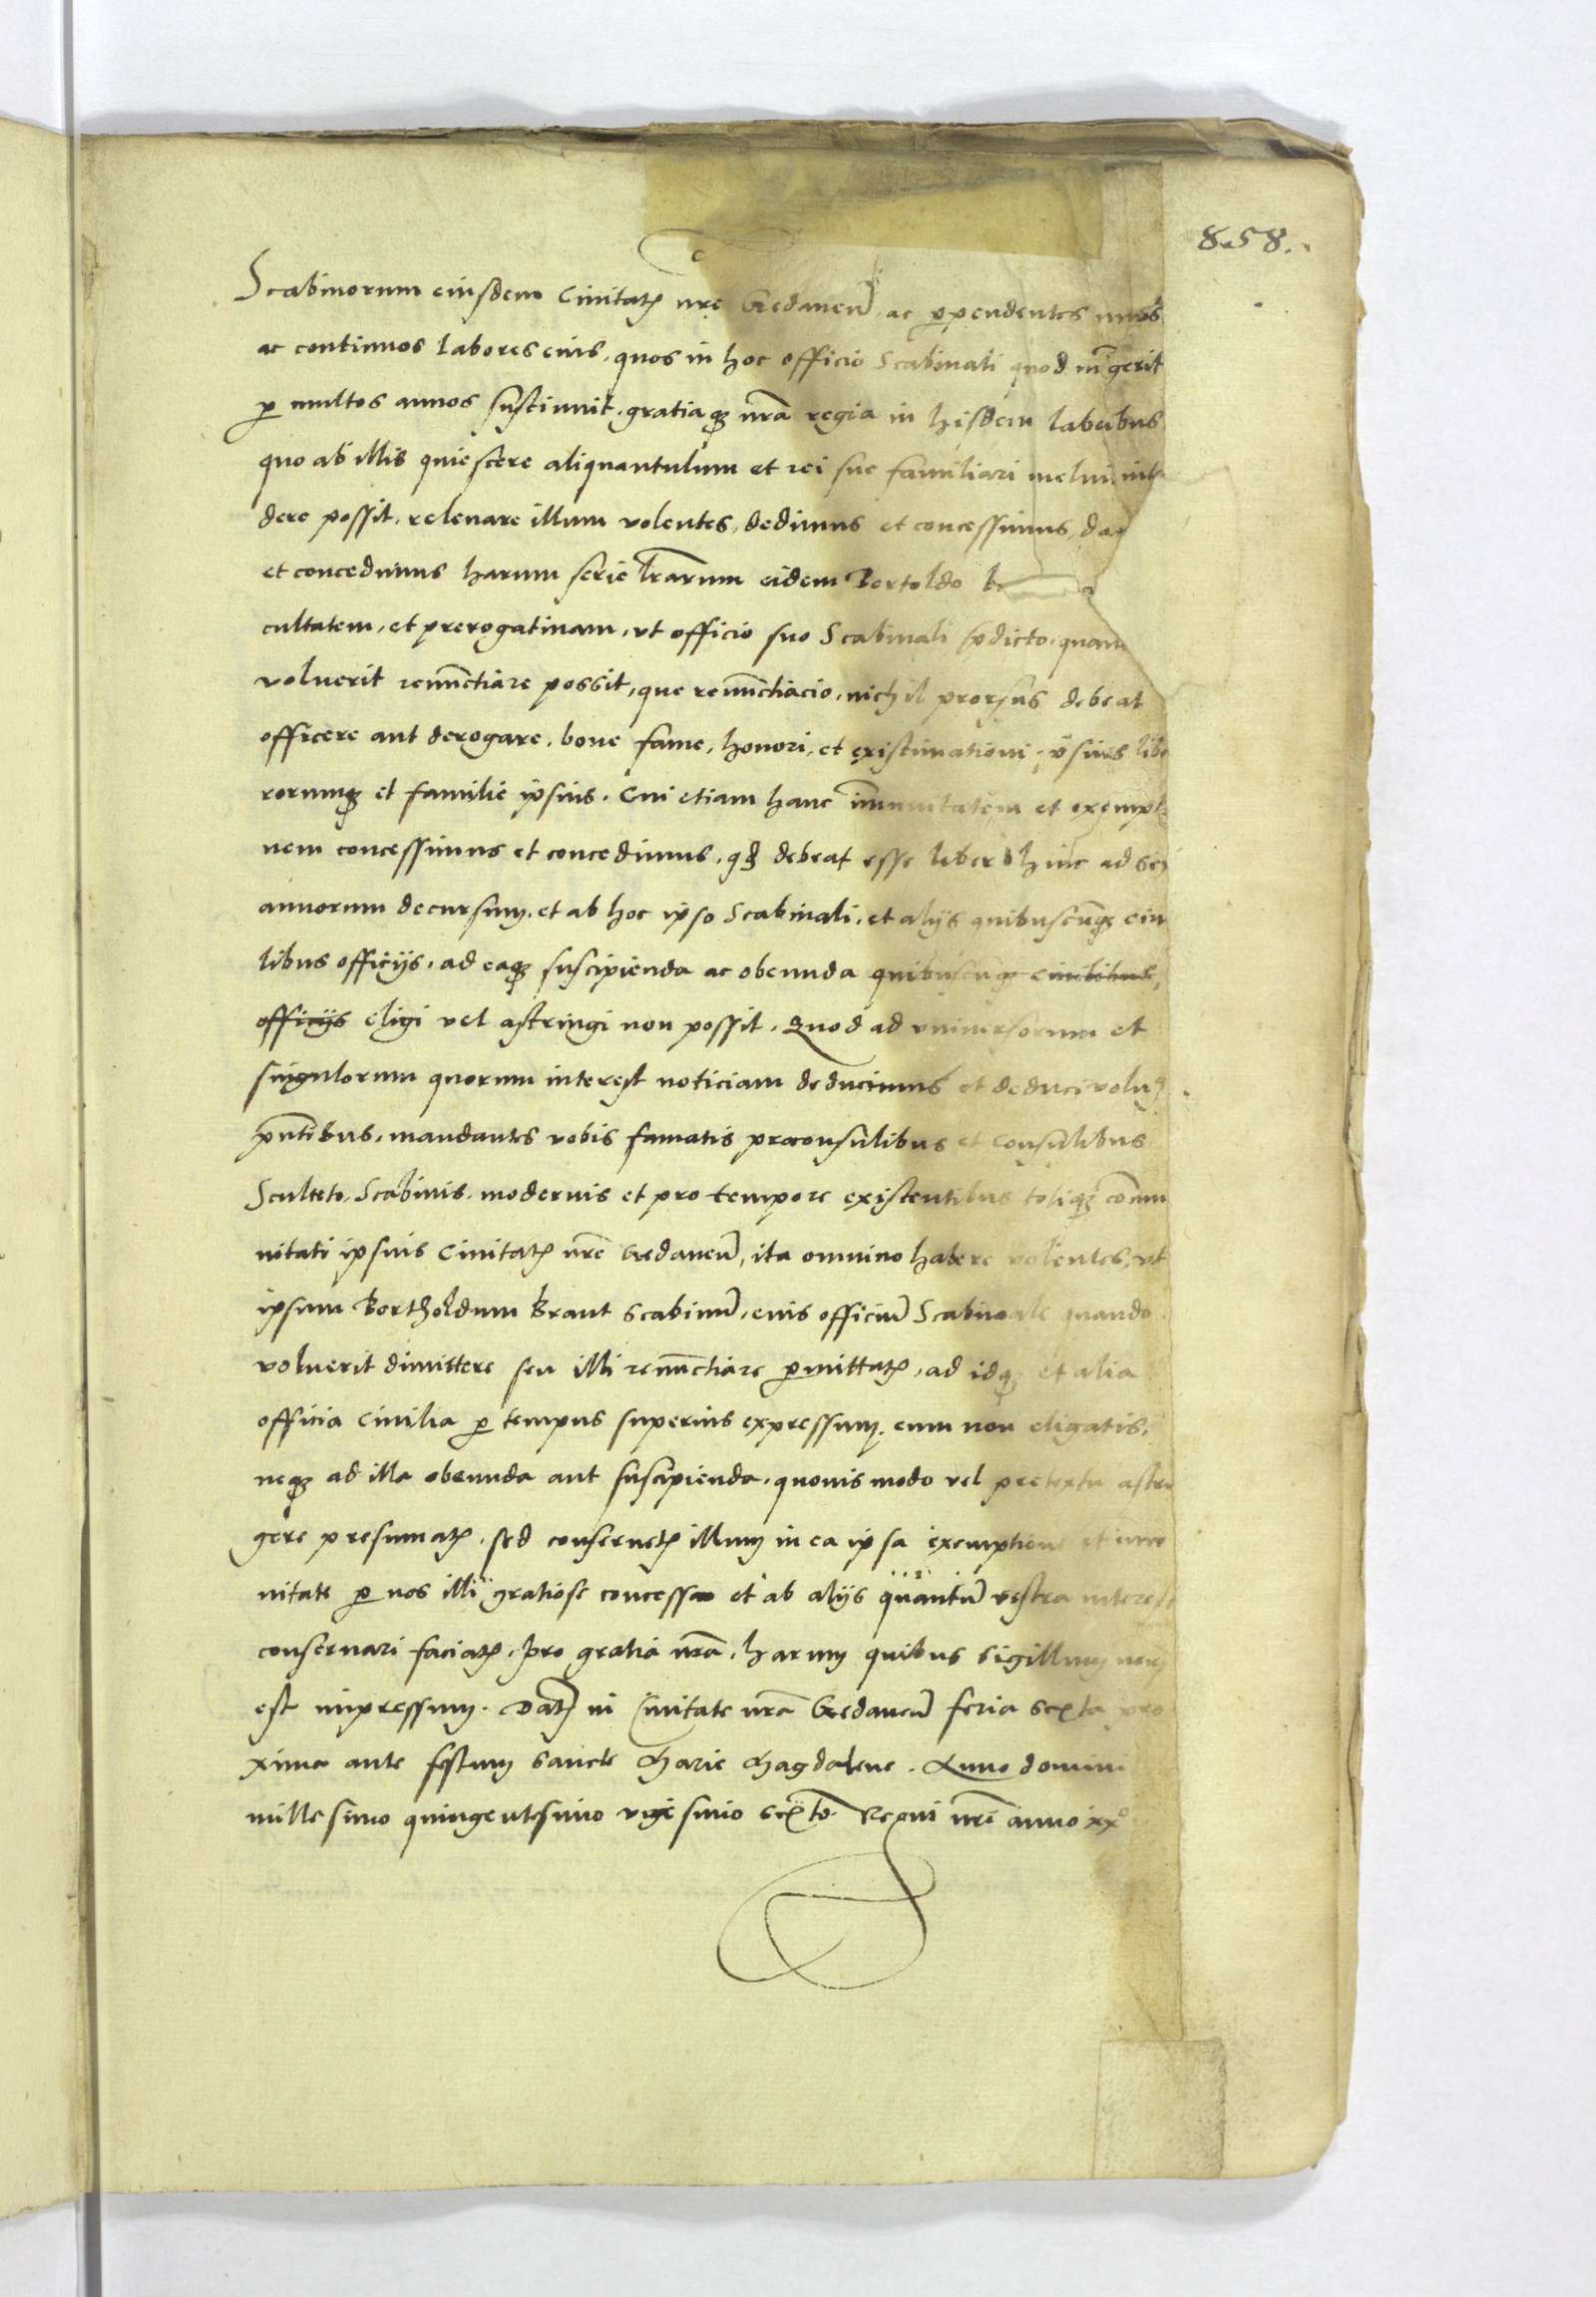 858.
Scabinorum eiusdem Ciuitatꝭ nrẹ Gedaneñ ac ꝑpendentes
ac continuos labores eius, quos in hoc officio Scabinali quod gerit
ꝑ multos annos sustinuit, gratiaqꝫ nr̃a regia in hisdem laboribus
quo ab illis quiescere aliquantulum et rei sue familiari
dere possit, releuare illum volentes, dedimus et concessimus, da
et concedimus harum serie lr̃arum eidem Bertoldo
cultatem, et prerogatinam, vt officio suo Scabinali p̃dicto, quan
voluerit renũctiare possit, que renũctiacio, nichil prorsus debeat
officere aut derogare, bone fame, honori, et existimationi, ipsius libe
rorumqꝫ et familie ipsius. Cui etiam hanc im̃unitatem et exempt
nem concessimus et concedimus, qđ debeat esse liber hinc ad sex
annorum decursum, et ab hoc ipso Scabinali, et alijs quibuscũqꝫ ciui
libus officijs, ad eaqꝫ suscipienda ac obeunda quibuscũqꝫ ciuilibus
officijs eligi vel astringi non possit. Quod ad vniuersorum et
singulorum quorum interest noticiam deducimus et deduci volum
pñtibus, mandantes vobis famatis proconsulibus et Consulibus
Sculteto, Scabinis, modernis et pro tempore existentibus totiqꝫ com̃u
nitati ipsius Ciuitatꝭ nr̃e Gedaneñ, ita omnino habere volentes, vt
ipsum Bertholdum Brant scabinũ, eius officiũ Scabinale quando
voluerit dimittere seu illi renũctiare ꝑmittatꝭ, ad idqꝫ et alia
officia Ciuilia ꝑ tempus superius expressum, eum non eligatis,
neqꝫ ad illa obeunda aut suscipienda, quouis modo vel pretextu astrin
gere presumatꝭ, sed conseruetꝭ illum in ea ipsa exemptione et immu
nitate ꝑ nos illi gratiose concessa et ab alijs quantũ vestra interest
conseruari faciatꝭ, pro gratia nr̃a, harum quibus Sigillum nrm̃
est impressum. Datꝭ in Ciuitate nr̃a Gedaneñ feria sexta pro
xima ante festum sancte Marie Magdalene. Anno domini
millesimo quingentesimo vigesimo sexto Regni nr̃i anno xxº